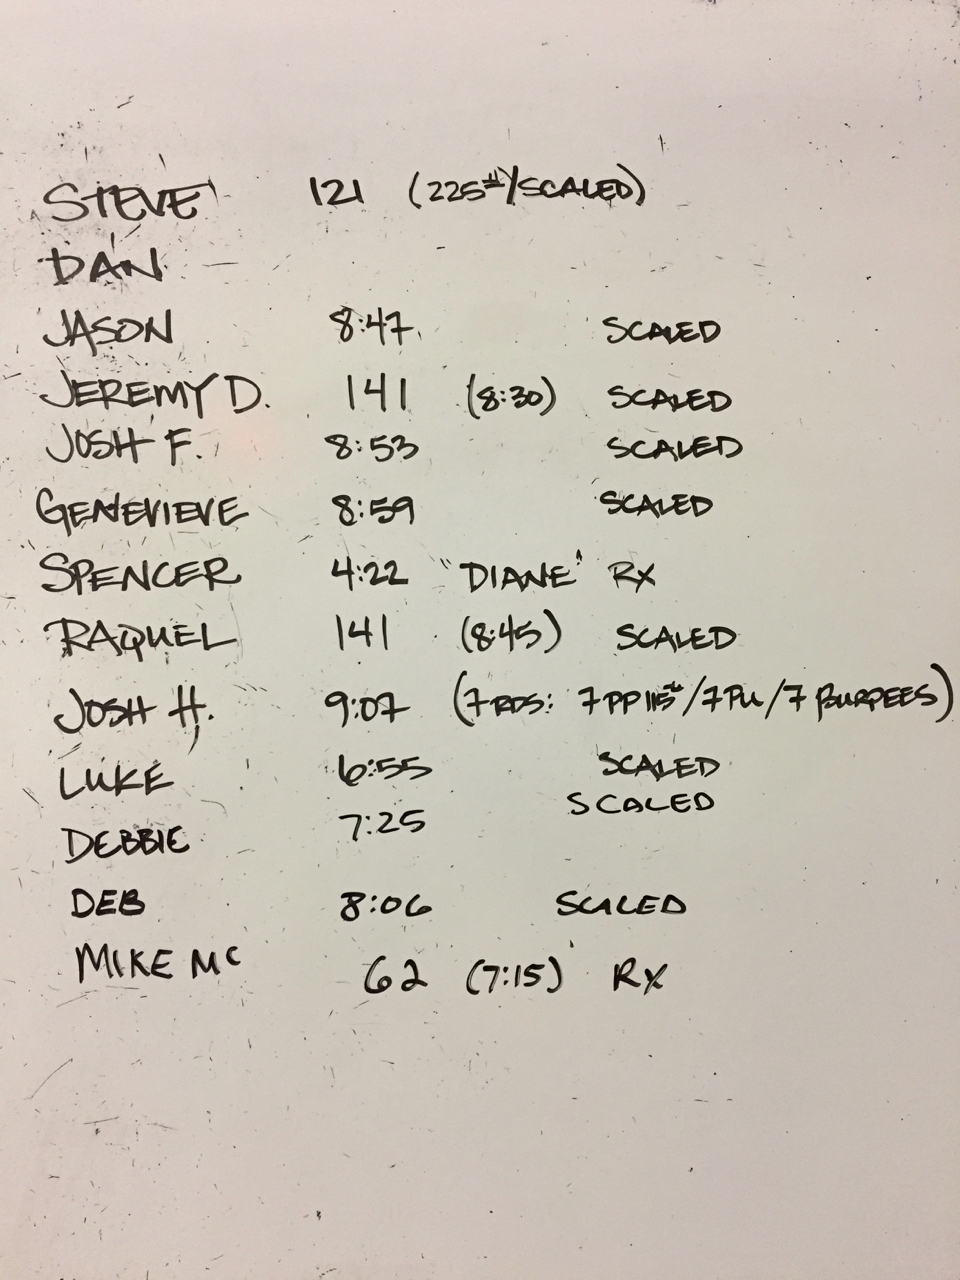 STEVE 121 (225#/SCALED)
DAN
JASON 8:47 SCALED
JEREMY D. 141 (8:30) SCALED
JOSH F. 8:53 SCALED
GENEVIEVE 8:59 SCALED
SPENCER 4:22 "DIANE" RX
RAQUEL 141 (8:45) SCALED
JOSH H. 9:07 (7 RDS: 7 PP 115#/7 PU/7 BURPEES)
LUKE 6:55 SCALED
DEBBIE 7:25 SCALED
DEB 8:06 SCALED
MIKE MC 62 (7:15) RX